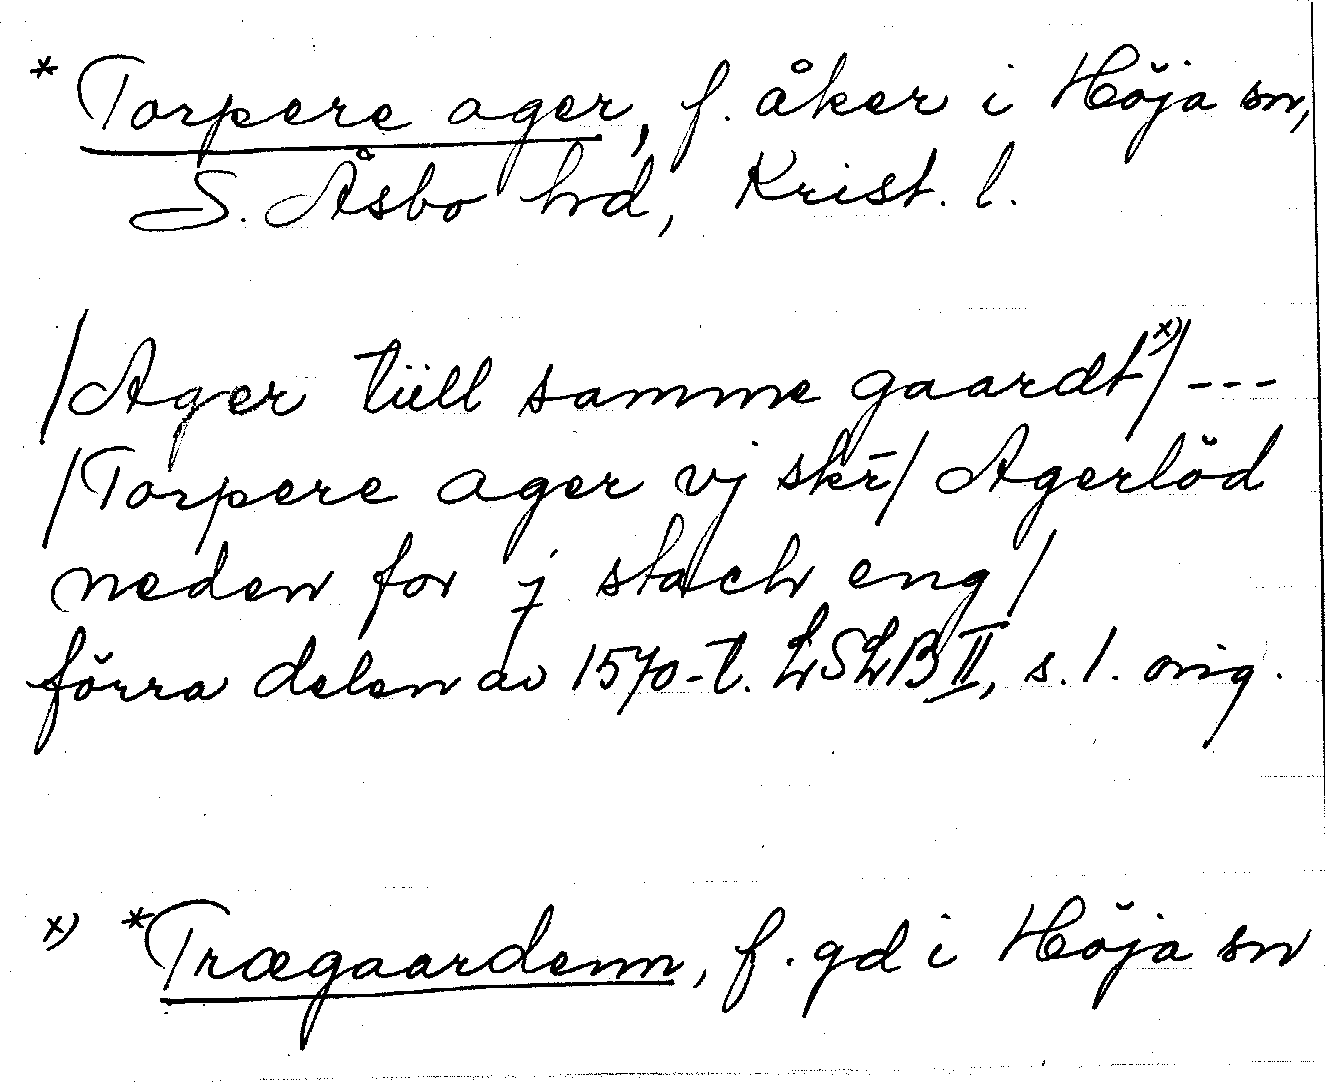 * Torpere ager, f. åker i Höja sn,
S. Åsbo hd, Krist. l.
/Ager tüll samme gaardt x)/ ---
/Torpere ager vj skr̄/ Agerlöd
neden for j stach eng/
förra delen av 1570-t. LSLB II, s. 1. orig.
x) *Trægaardenn, f. gd i Höja sn